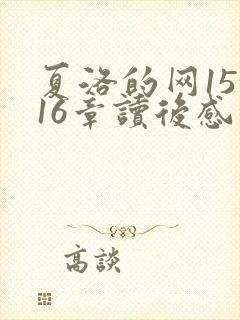 夏洛的网15
16章讀後感
高談